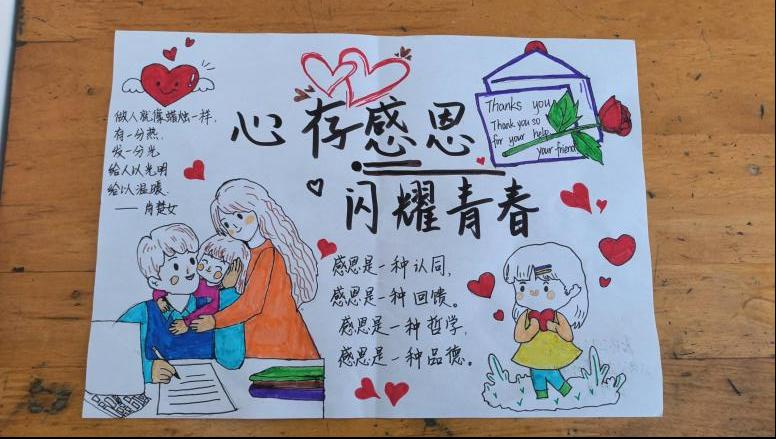 做人就像蜡烛一样,
有一分热,
发一分光,
给人以光明
给以温暖.
—— 肖楚女
心存感恩
闪耀青春
Thanks you
Thank you so
for your help
your friend
感恩是一种认同,
感恩是一种回馈。
感恩是一种哲学,
感恩是一种品德。